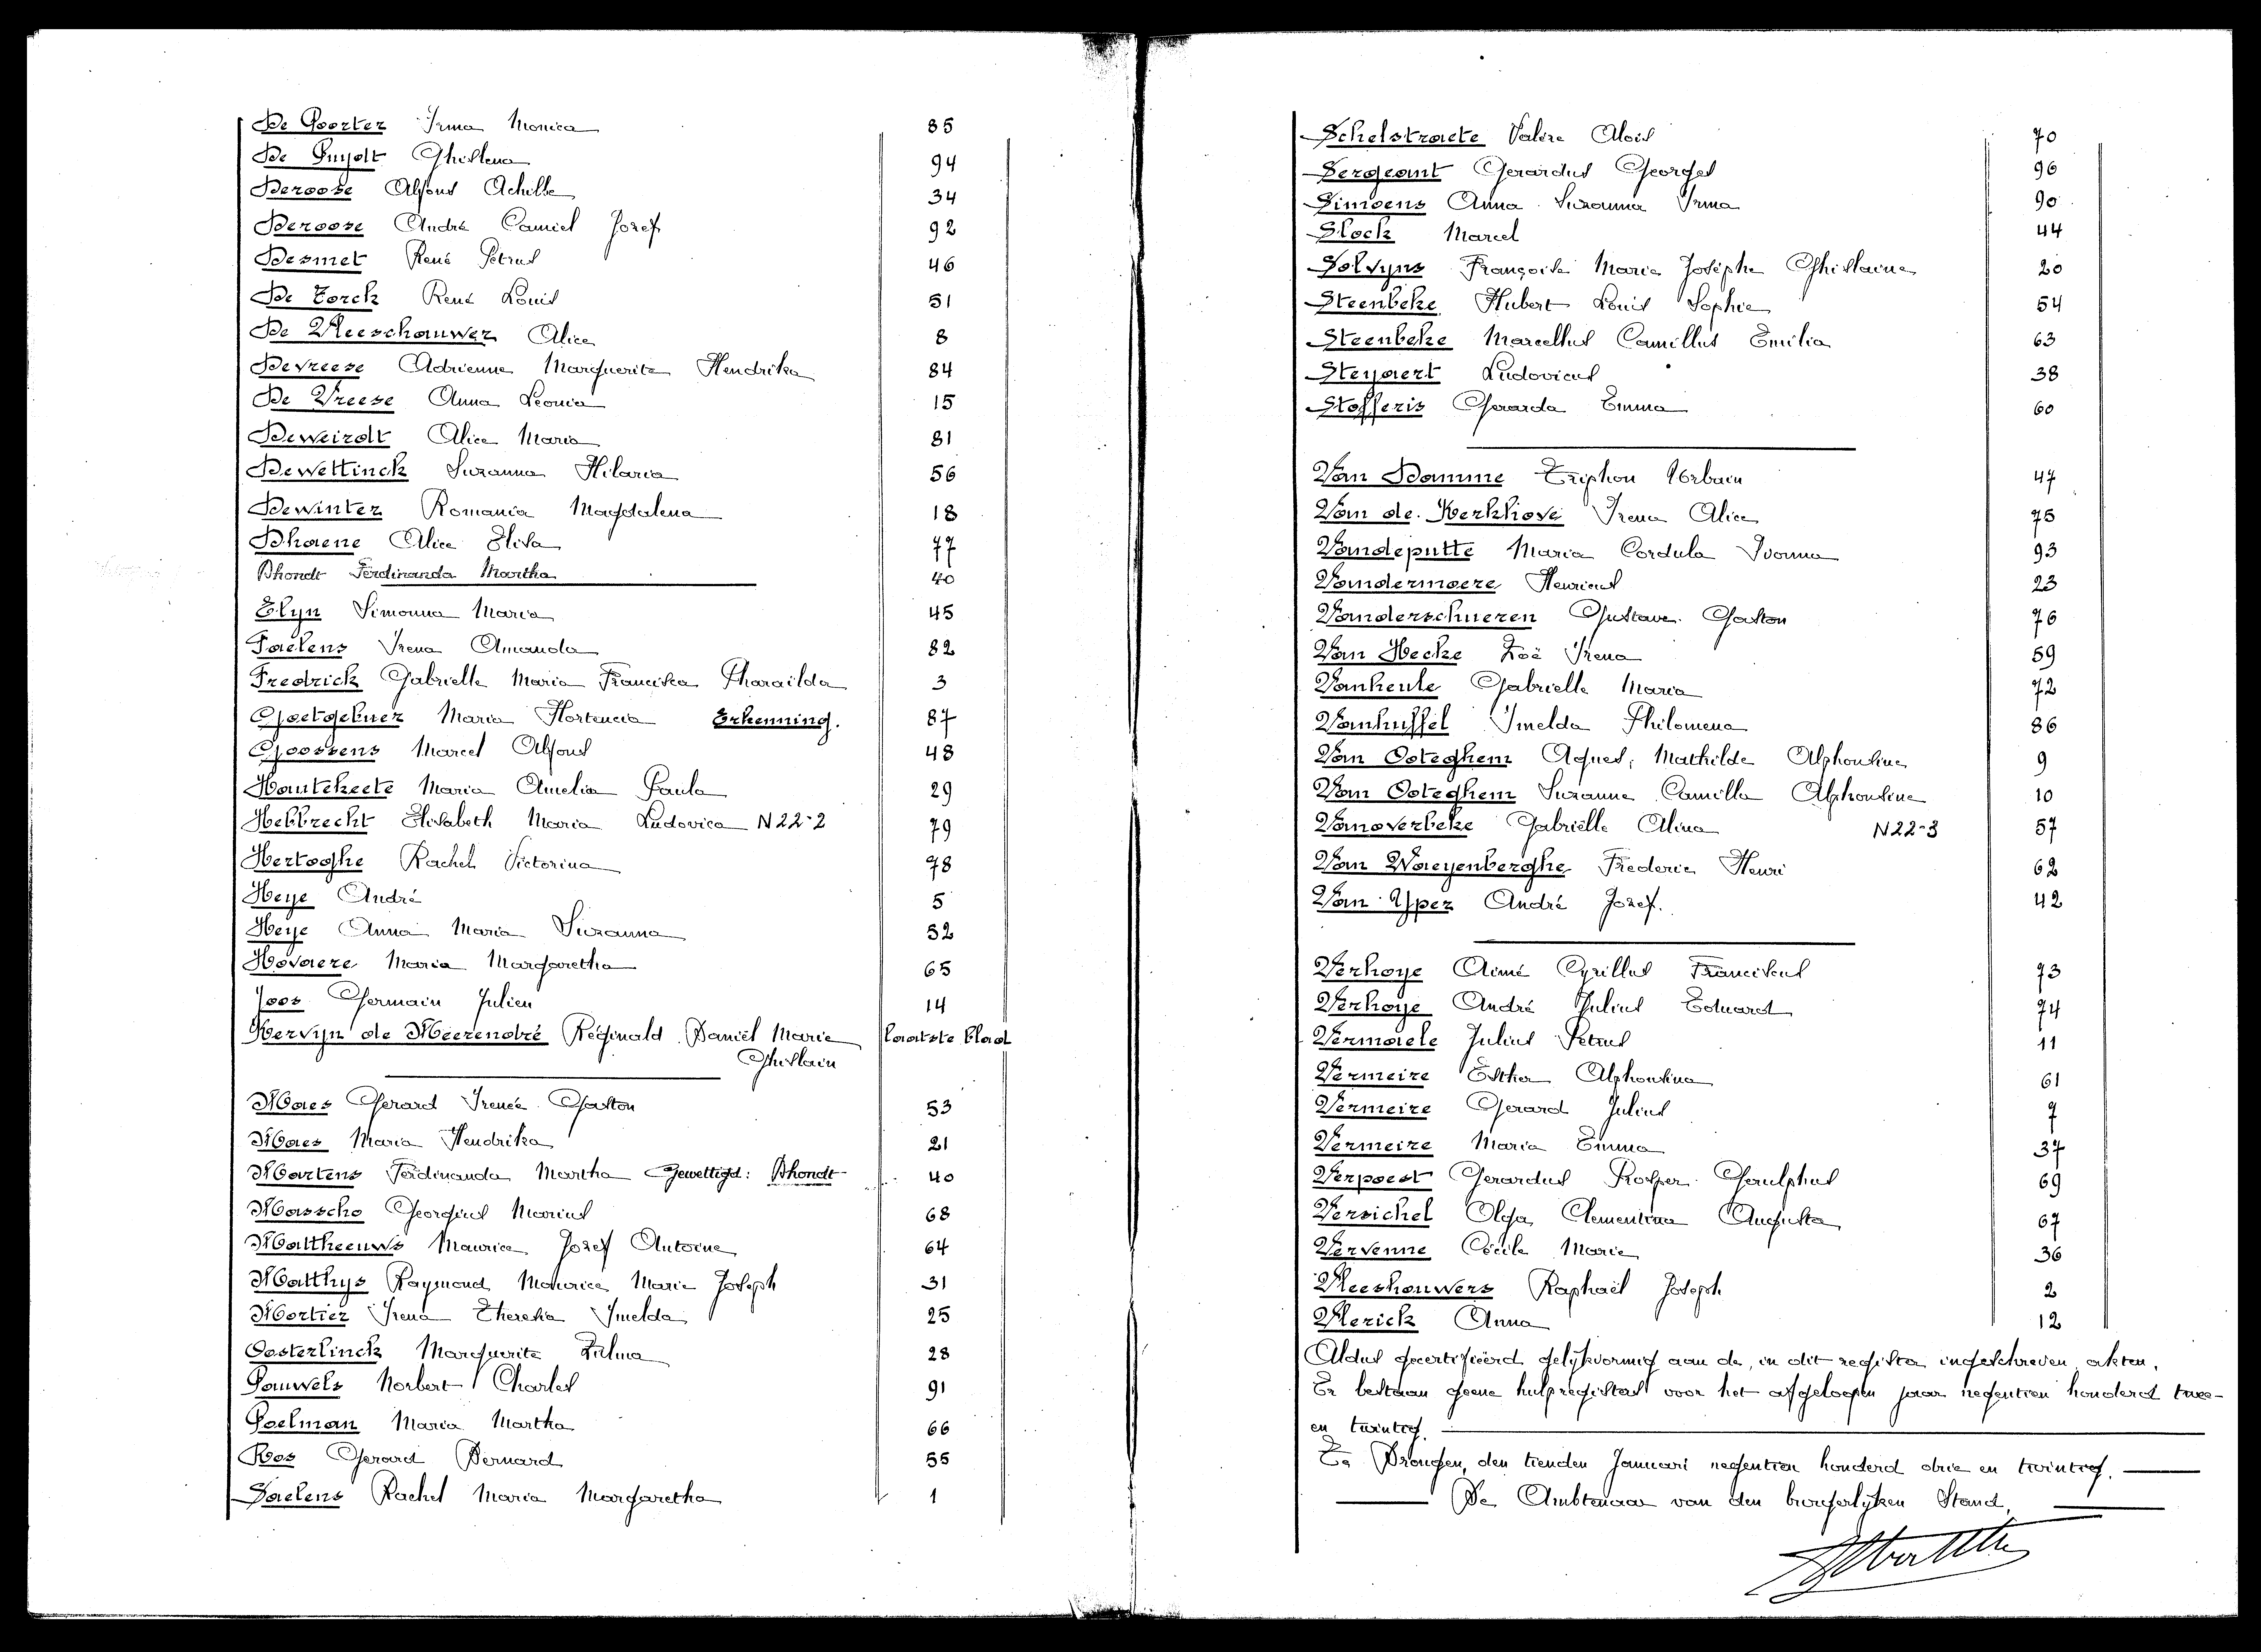 De Poorter Irma Monica 85
De Puydt Ghislena 94
Deroose Alfons Achille 34
Deroose André Camiel Jozef 92
Desmet René Petrus 46
De Torck René Louis 51
De Vleeschauwer Alice 8
Devreese Adrienne Marguerite Hendrika 84
De Vreese Anna Leonia 15
Deweirdt Alice Maria 81
Dewettinck Suzanna Hilaria 56
Dewinter Romania Magdalena 18
Dhaene Alice Elisa 77
Dhondt Ferdinanda Martha 40
Elyn Simonna Maria 45
Faelens Irena Amanda 82
Fredrick Gabrielle Maria Franciska Pharaïlda 3
Goetgebuer Maria Hortencia Erkenning. 87
Goossens Marcel Alfons 48
Hautekeete Maria Amelia Paula 29
Hebbrecht Elisabeth Maria Ludovica N22-2 79
Hertoghe Rachel Victorina 78
Heye André 5
Heye Anna Maria Suzanna 52
Hovaere Maria Margaretha 65
Joos Germain Julien 14
Kervyn de Meerendré Réginald Daniël Marie laatste blad
Ghislain
Maes Gerard Irenée Gaston 53
Maes Maria Hendrika 21
Martens Ferdinanda Martha Gewettigd: Dhondt 40
Masscho Georgius Marius 68
Mattheeuws Maurice Jozef Antoine 64
Matthys Raymond Maurice Marie Joseph 31
Mortier Irena Theresia Imelda 25
Oosterlinck Marguerite Zulma 28
Pauwels Norbert Charles 91
Poelman Maria Martha 66
Ros Gerard Bernard 55
Saelens Rachel Maria Margaretha 1
Schelstraete Valère Aloïs 70
Sergeant Gerardus Georges 96
Simoens Anna Suzanna Irma 90
Slock Marcel 44
Solvyns Françoise Marie Josèphe Ghislaine 20
Steenbeke Hubert Louis Sophie 54
Steenbeke Marcellus Camillus Emilia 63
Steyaert Ludovicus 38
Stofferis Gerarda Emma 60
Van Damme Triphon Urbain 47
Van de Kerkhove Irena Alice 75
Vandeputte Maria Cordula Ivonna 93
Vandermaere Henricus 23
Vanderschueren Gustave Gaston 76
Van Hecke Zoë Irena 59
Vanheule Gabrielle Maria 72
Vanhuffel Imelda Philomena 86
Van Ooteghem Agnes, Mathilde Alphonsine 9
Van Ooteghem Suzanne Camilla Alphonsine 10
Vanoverbeke Gabriëlle Alina N22-3 57
Van Waeyenberghe Frederic Henri 62
Van Yper André Jozef. 42
Verhoye Aimé Cyrillus Franciscus 73
Verhoye André Julius Eduard 74
Vermaele Julius Petrus 11
Vermeire Esther Alphonsina 61
Vermeire Gerard Julius 7
Vermeire Maria Emma 37
Verpoest Gerardus Prosper Gaulphus 69
Versichel Olga Clementina Augusta 67
Vervenne Cécile Marie 36
Vleeshouwers Raphaël Joseph 2
Vlerick Anna 12
Aldus gecertifieerd gelijkvormig aan de, in dit register ingeschreven akten.
Er bestaan geene hulpregisters voor het afgeloopen jaar negentien honderd twee-
en twintig.
Te Drongen, den tienden Januari negentien honderd drie en twintig.
De Ambtenaar van den burgerlijken Stand,